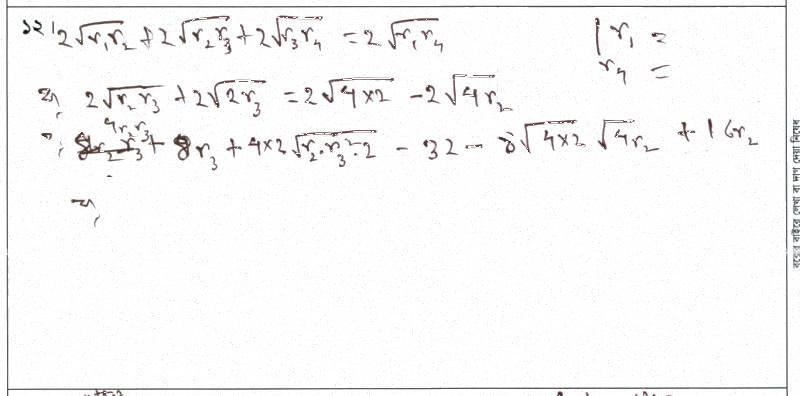 ১২। 2√r₁r₂ + 2√r₂r₃ + 2√r₃r₄ = 2√r₁r₄
r₁ =
r₄ =
বা, 2√r₂r₃ + 2√2r₃ = 2√4×2 - 2√4r₂
বা, 4r₂r₃ + 8r₃ + 4×2√r₂·r₃²·2 = 32 - 8√4×2 √4r₂ + 16r₂
বা,
বক্সের বাইরে লেখা বা দাগ দেয়া নিষেধ